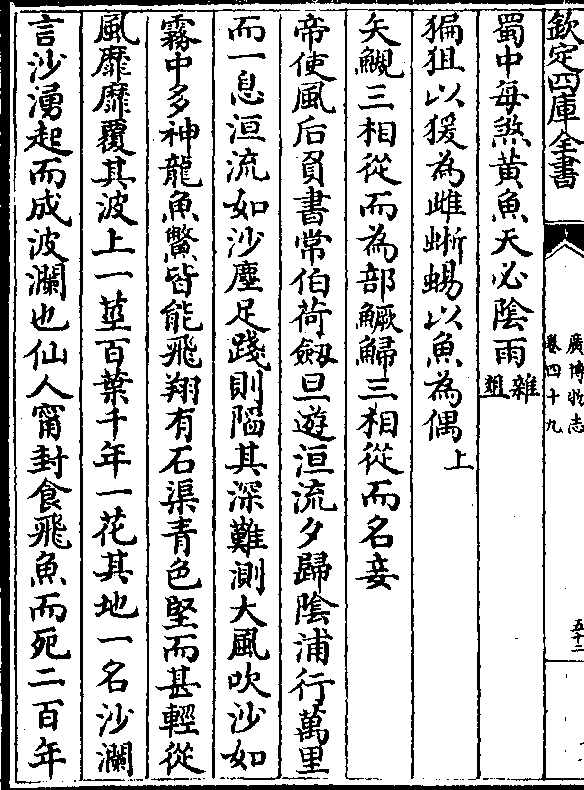 欽定四庫全書
廣博物志
卷四十九
五十二
蜀中每煞黃魚天必陰雨雜
俎
猵狙以猨為雌蜥蜴以魚為偶上
矢鯢三相從而為部鱖鯞三相從而名妾
帝使風后負書常伯荷劔旦遊洹流夕歸陰浦行萬里
而一息洹流如沙塵足踐則陷其深難測大風吹沙如
霧中多神龍魚鱉皆能飛翔有石渠青色堅而甚輕從
風靡靡覆其波上一莖百葉千年一花其地一名沙瀾
言沙湧起而成波瀾也仙人甯封食飛魚而死二百年